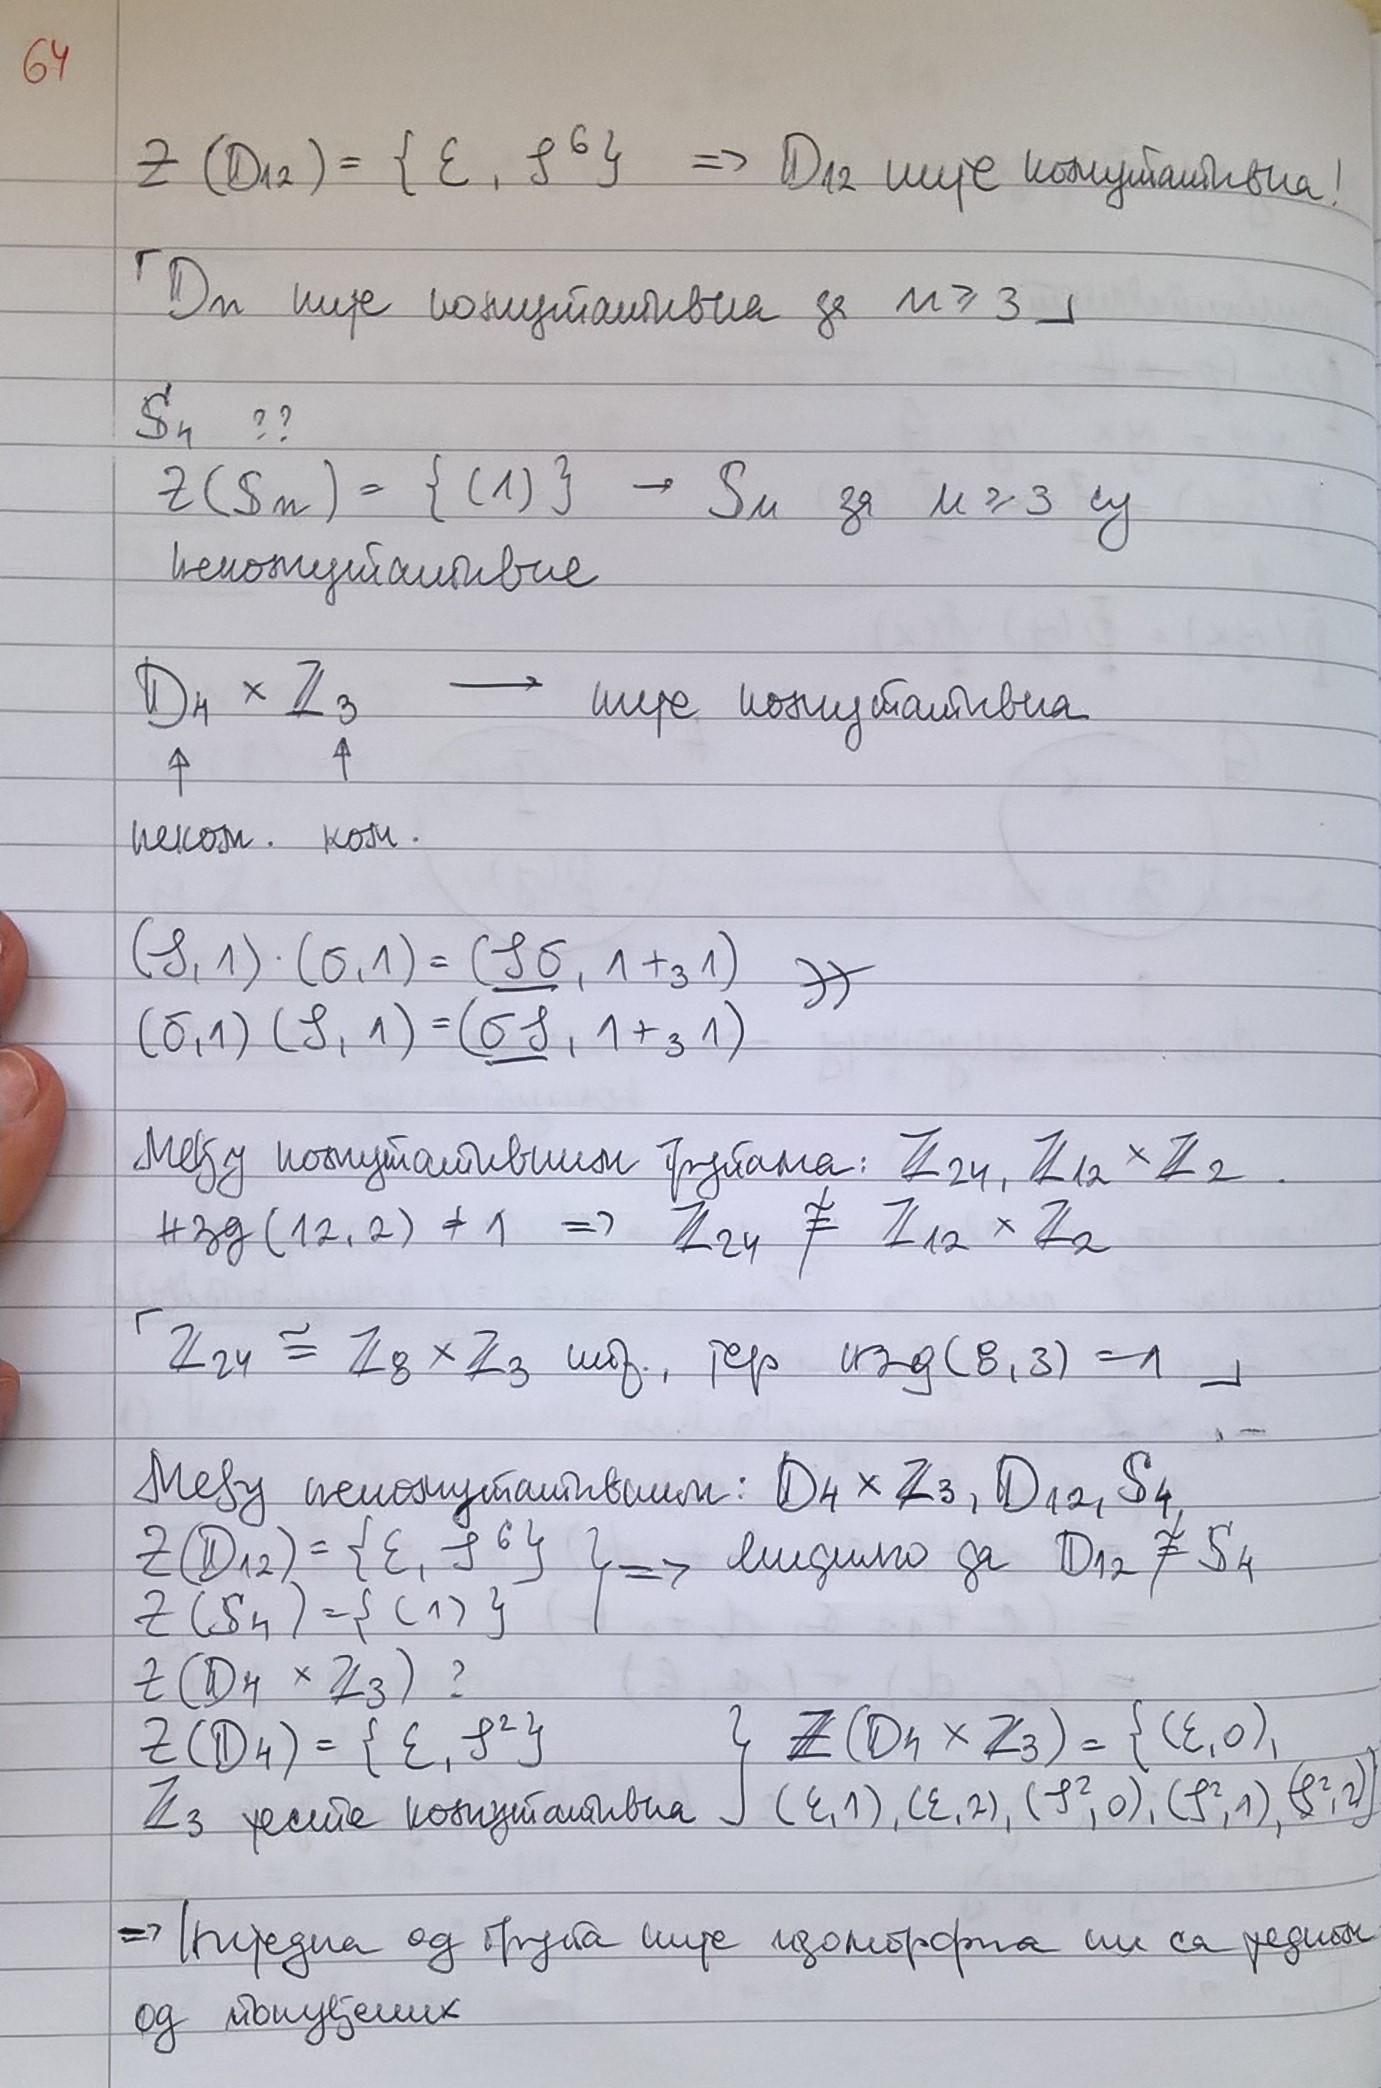 64
Z(D₁₂) = {ε, ρ⁶} => D₁₂ није комутативна!
⌜Dn није комутативна за n ≥ 3⌟
S₄ ??
Z(Sn) = {(1)} → Sn за n ≥ 3 су
некомутативне
D₄ × ℤ₃ ⟶ није комутативна
↑ ↑
неком. ком.
(ρ,1)·(σ,1) = (ρσ, 1+₃1)
(σ,1)(ρ,1) = (σρ, 1+₃1)
Међу комутативним групама: ℤ₂₄, ℤ₁₂ × ℤ₂.
нзд(12,2) ≠ 1 => ℤ₂₄ ≇ ℤ₁₂ × ℤ₂
⌜ℤ₂₄ ≅ ℤ₈ × ℤ₃ нпр., јер нзд(8,3) = 1⌟
Међу некомутативним: D₄ × ℤ₃, D₁₂, S₄
Z(D₁₂) = {ε, ρ⁶} } => видимо да D₁₂ ≇ S₄
Z(S₄) = {(1)}
Z(D₄ × ℤ₃) ?
Z(D₄) = {ε, ρ²} } Z(D₄ × ℤ₃) = {(ε,0),
ℤ₃ јесте комутативна (ε,1), (ε,2), (ρ²,0), (ρ²,1), (ρ²,2)}
=> Ниједна од група није изоморфна ни са једном
од понуђених